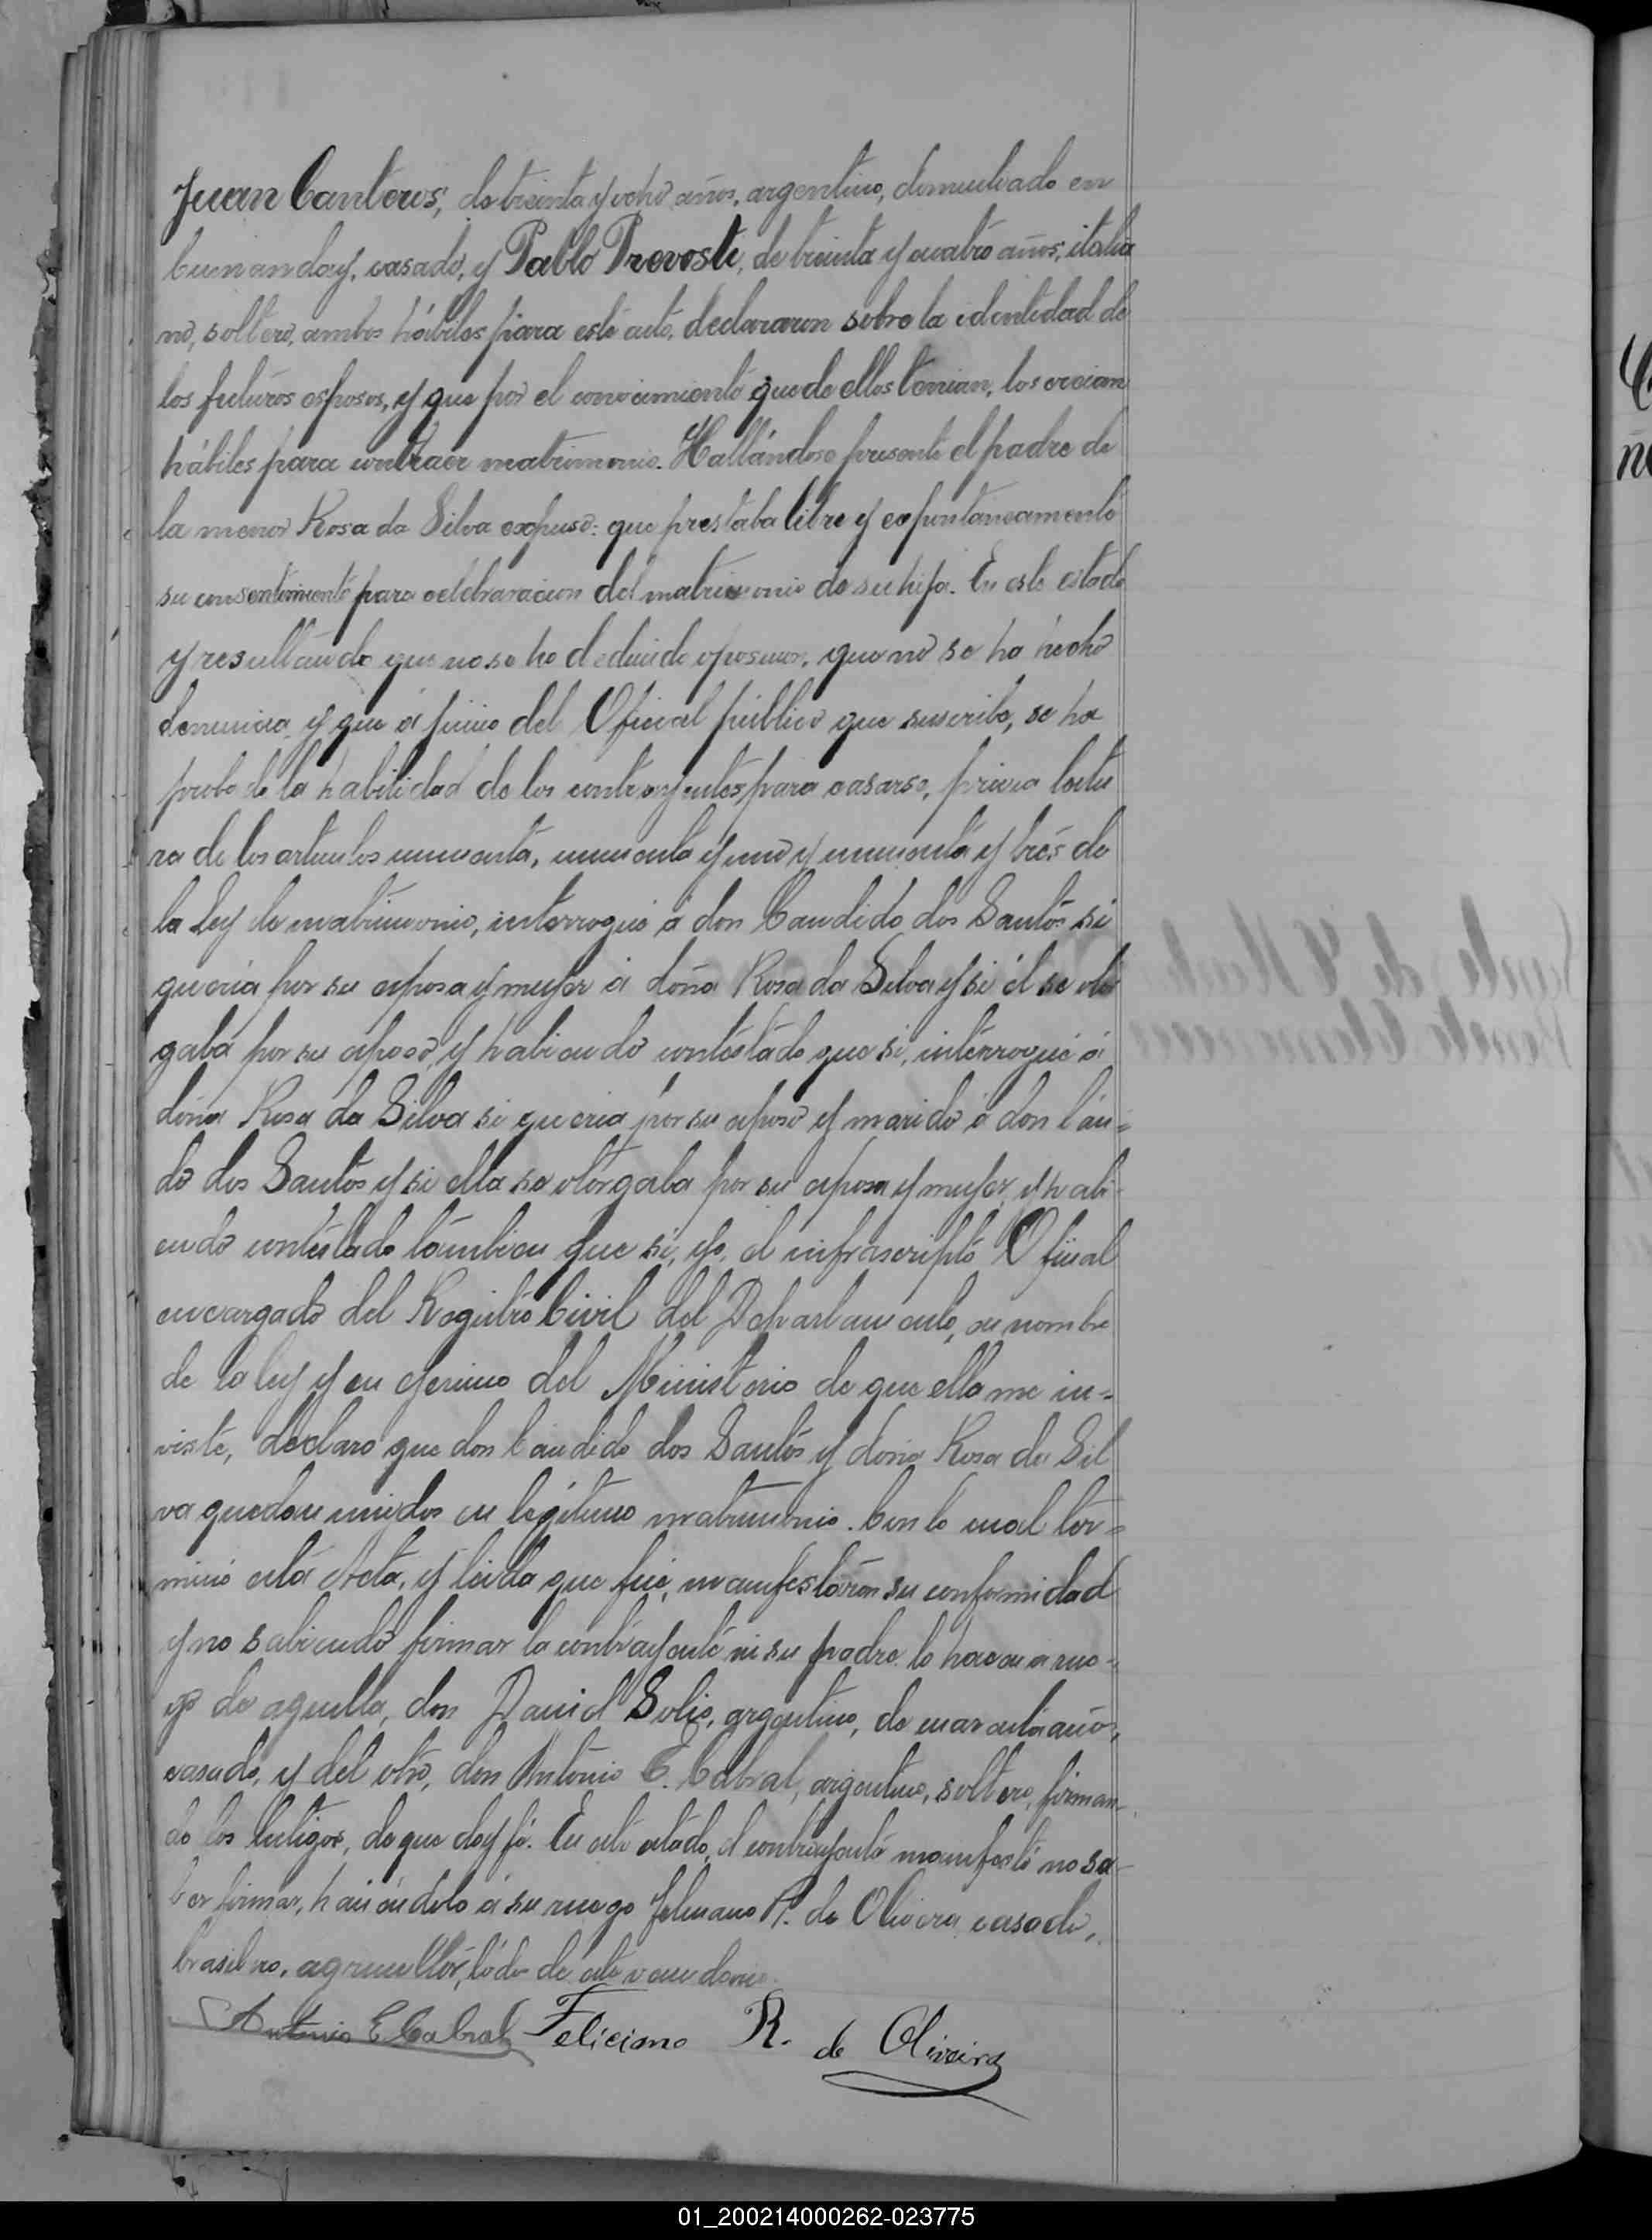 Juan Canteros, de treinta y ocho años, argentino, domiciliado en
Cumanday, casado, y Pablo Prevoste, de treinta y cuatro años, italia
no, soltero, ambos hábiles para este acto, declararon sobre la identidad de
los futuros esposos, y que por el conocimiento que de ellos tenian, los creian
hábiles para contraer matrimonio. Hallándose presente el padre de
la menor Rosa da Silva expuso: que prestaba libre y espontaneamente
su consentimiento para celebracion del matrimonio de su hija. En este estado
y resultando que no se ha deducido oposicion, que no se ha hecho
denuncia y que á juicio del Oficial público que suscribe, se ha
probado la habilidad de los contrayentes para casarse, prévia lectu
ra de los articulos cincuenta, cincuenta y uno y cincuenta y tres de
la Ley de matrimonio, interrogué á don Candido dos Santos si
queria por su esposa y mujer á doña Rosa da Silva y si él se otor
gaba por su esposo, y habiendo contestado que si, interrogué á
doña Rosa da Silva si queria por su esposo y marido á don Cán-
do dos Santos y si ella se otorgaba por su esposa y mujer, y habi-
endo contestado tambien que si, yo, el infrascripto Oficial
encargado del Registro Civil del Departamento, en nombre
de la ley y en ejercicio del Ministerio de que ella me in-
viste, declaro que don Candido dos Santos y doña Rosa da Sil
va quedan unidos en legítimo matrimonio. Con lo cual ter-
minó esta Acta, y leida que fué, manifestaron su conformidad
y no sabiendo firmar la contrayente ni su padre lo hacen á rue-
go de aquella, don David Solis, argentino, de cuarenta años,
casado, y del otro, don Antonio E. Cabral, argentino, soltero, firman-
do los testigos, de que doy fé. En este estado, el contrayente manifestó no sa-
ber firmar, haciéndolo á su ruego Feliciano R. de Olivera, casado,
brasilero, agricultor, todos de este vecindario.
Antonio E Cabral Feliciano R. de Oliveira
01_200214000262-023775